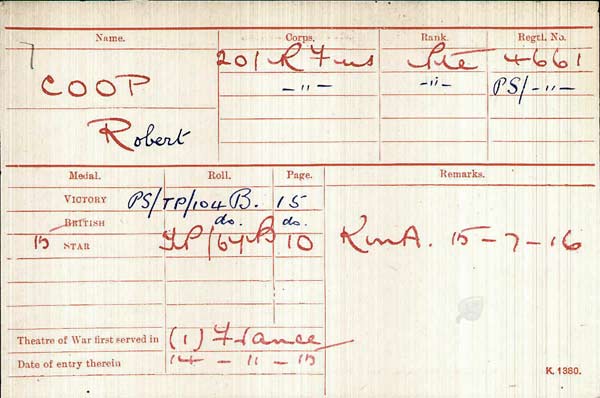 Name. Corps. Rank. Regtl. No.
COOP 20/ R Fus Pte 4661
-"- -"- PS/-"-
Robert
Medal. Roll. Page. Remarks.
VICTORY PS/TP/104 B. 15
BRITISH do. do.
15 STAR TP/64B 10 K in A. 15-7-16
Theatre of War first served in (1) France
Date of entry therein 14-11-15
K. 1380.